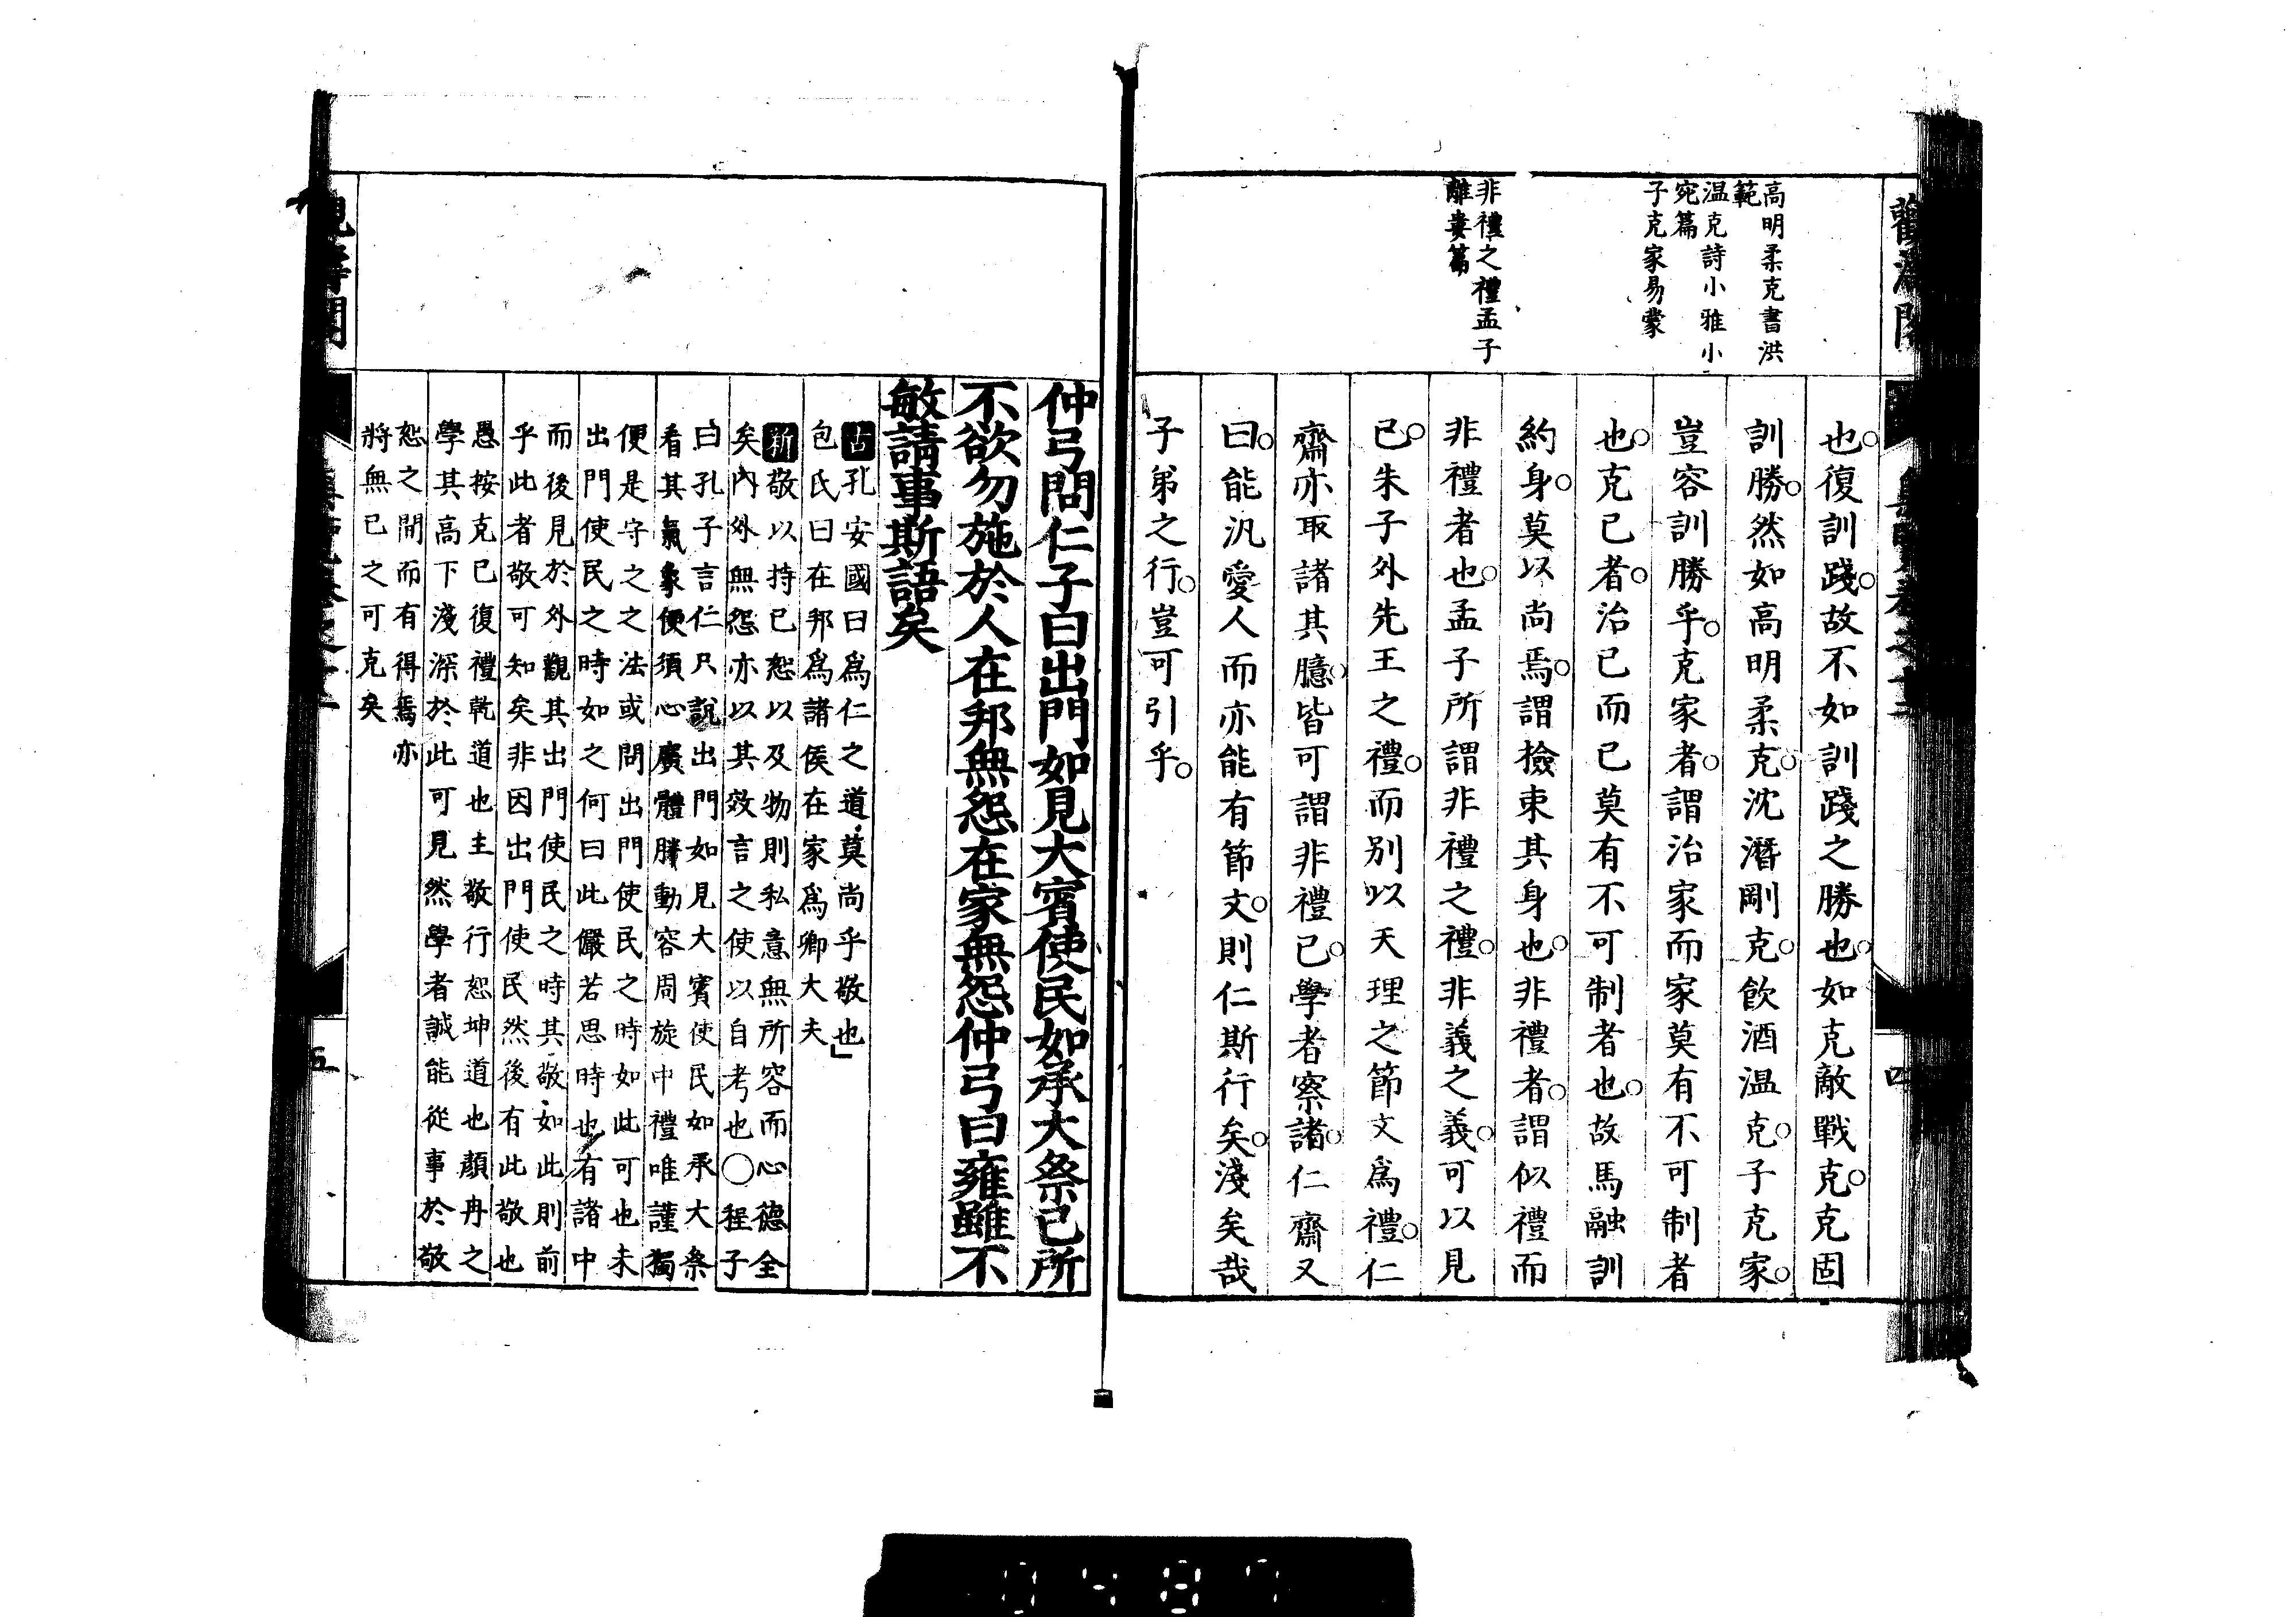 高明柔克書洪
範
温克詩小雅小
宛篇
子克家易蒙
非禮之禮孟子
離婁篇
也復訓踐故不如訓踐之勝也如克敵戰克克固
訓勝然如高明柔克沈潛剛克飲酒温克子克家
豈容訓勝乎克家者謂治家而家莫有不可制者
也克己者治己而已莫有不可制者也故馬融訓
約身莫以尚焉謂撿束其身也非禮者謂似禮而
非禮者也孟子所謂非禮之禮非義之義可以見
已朱子外先王之禮而別以天理之節文爲禮仁
齋亦取諸其臆皆可謂非禮已學者察諸仁齋又
曰能汎愛人而亦能有節文則仁斯行矣淺矣哉
子弟之行豈可引乎
四
仲弓問仁子曰出門如見大賓使民如承大祭己所
不欲勿施於人在邦無怨在家無怨仲弓曰雍雖不
敏請事斯語矣
古孔安國曰爲仁之道莫尚乎敬也
包氏曰在邦爲諸侯在家爲卿大夫
新敬以持己恕以及物則私意無所容而心德全
矣內外無怨亦以其效言之使以自考也○程子
曰孔子言仁只說出門如見大賓使民如承大祭
看其氣象便須心廣體胖動容周旋中禮唯謹獨
便是守之之法或問出門使民之時如此可也未
出門使民之時如之何曰此儼若思時也有諸中
而後見於外觀其出門使民之時其敬如此則前
乎此者敬可知矣非因出門使民然後有此敬也
愚按克己復禮乾道也主敬行恕坤道也顏冉之
學其高下淺深於此可見然學者誠能從事於敬
恕之間而有得焉亦
將無己之可克矣
五